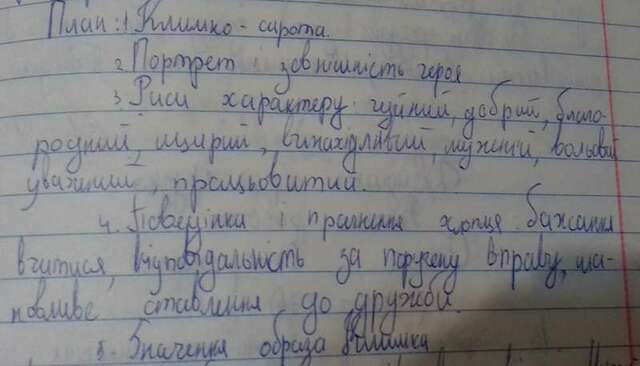 План: 1. Климко - сирота.
2. Портрет і зовнішність героя
3. Риси характеру: чуйний, добрий, благо-
родний, щирий, винахідливий, мужній, вольовий
уважний, працьовитий.
4. Поведінка і прагнення хлопця бажання
вчитися, відповідальність за поручену справу, ша-
новливе ставлення до дружби.
5. Значення образа Климка